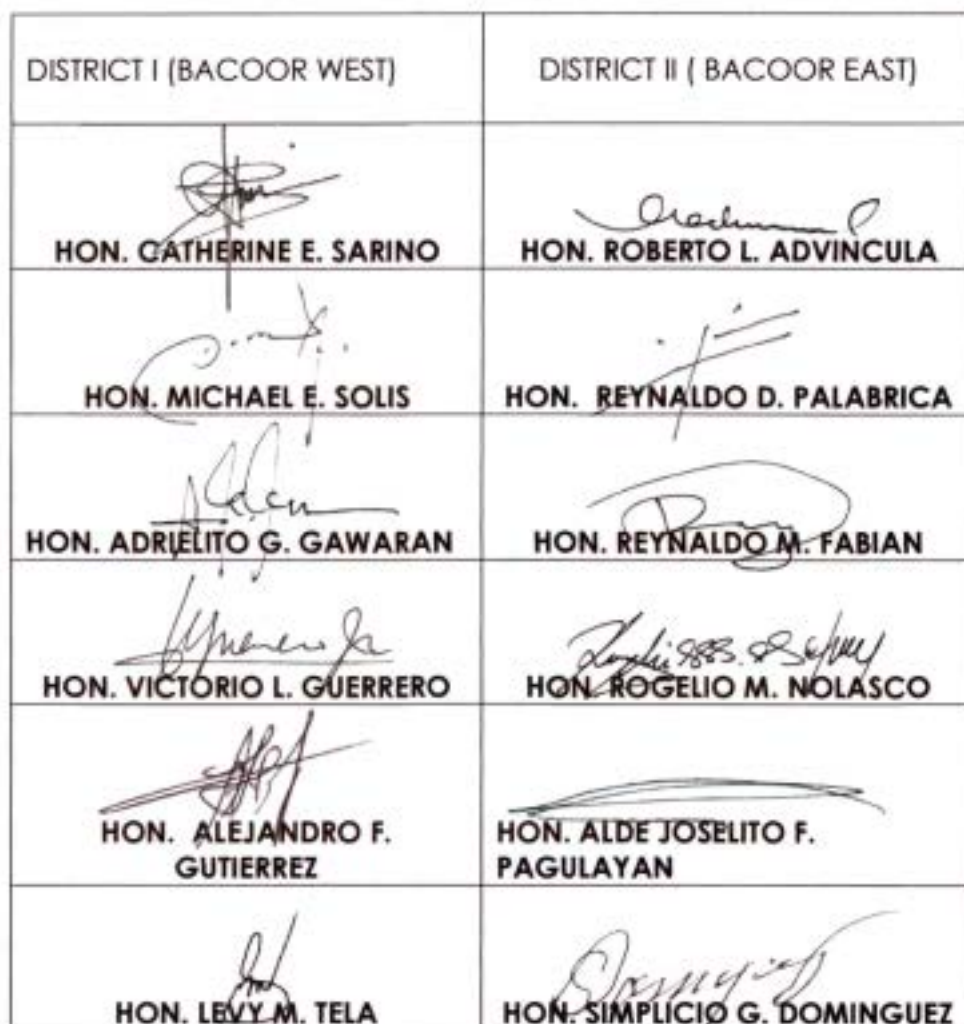 DISTRICT I (BACOOR WEST)
DISTRICT II ( BACOOR EAST)
HON. CATHERINE E. SARINO
HON. ROBERTO L. ADVINCULA
HON. MICHAEL E. SOLIS
HON. REYNALDO D. PALABRICA
HON. ADRIELITO G. GAWARAN
HON. REYNALDO M. FABIAN
HON. VICTORIO L. GUERRERO
HON. ROGELIO M. NOLASCO
HON. ALEJANDRO F.
GUTIERREZ
HON. ALDE JOSELITO F.
PAGULAYAN
HON. LEVY M. TELA
HON. SIMPLICIO G. DOMINGUEZ